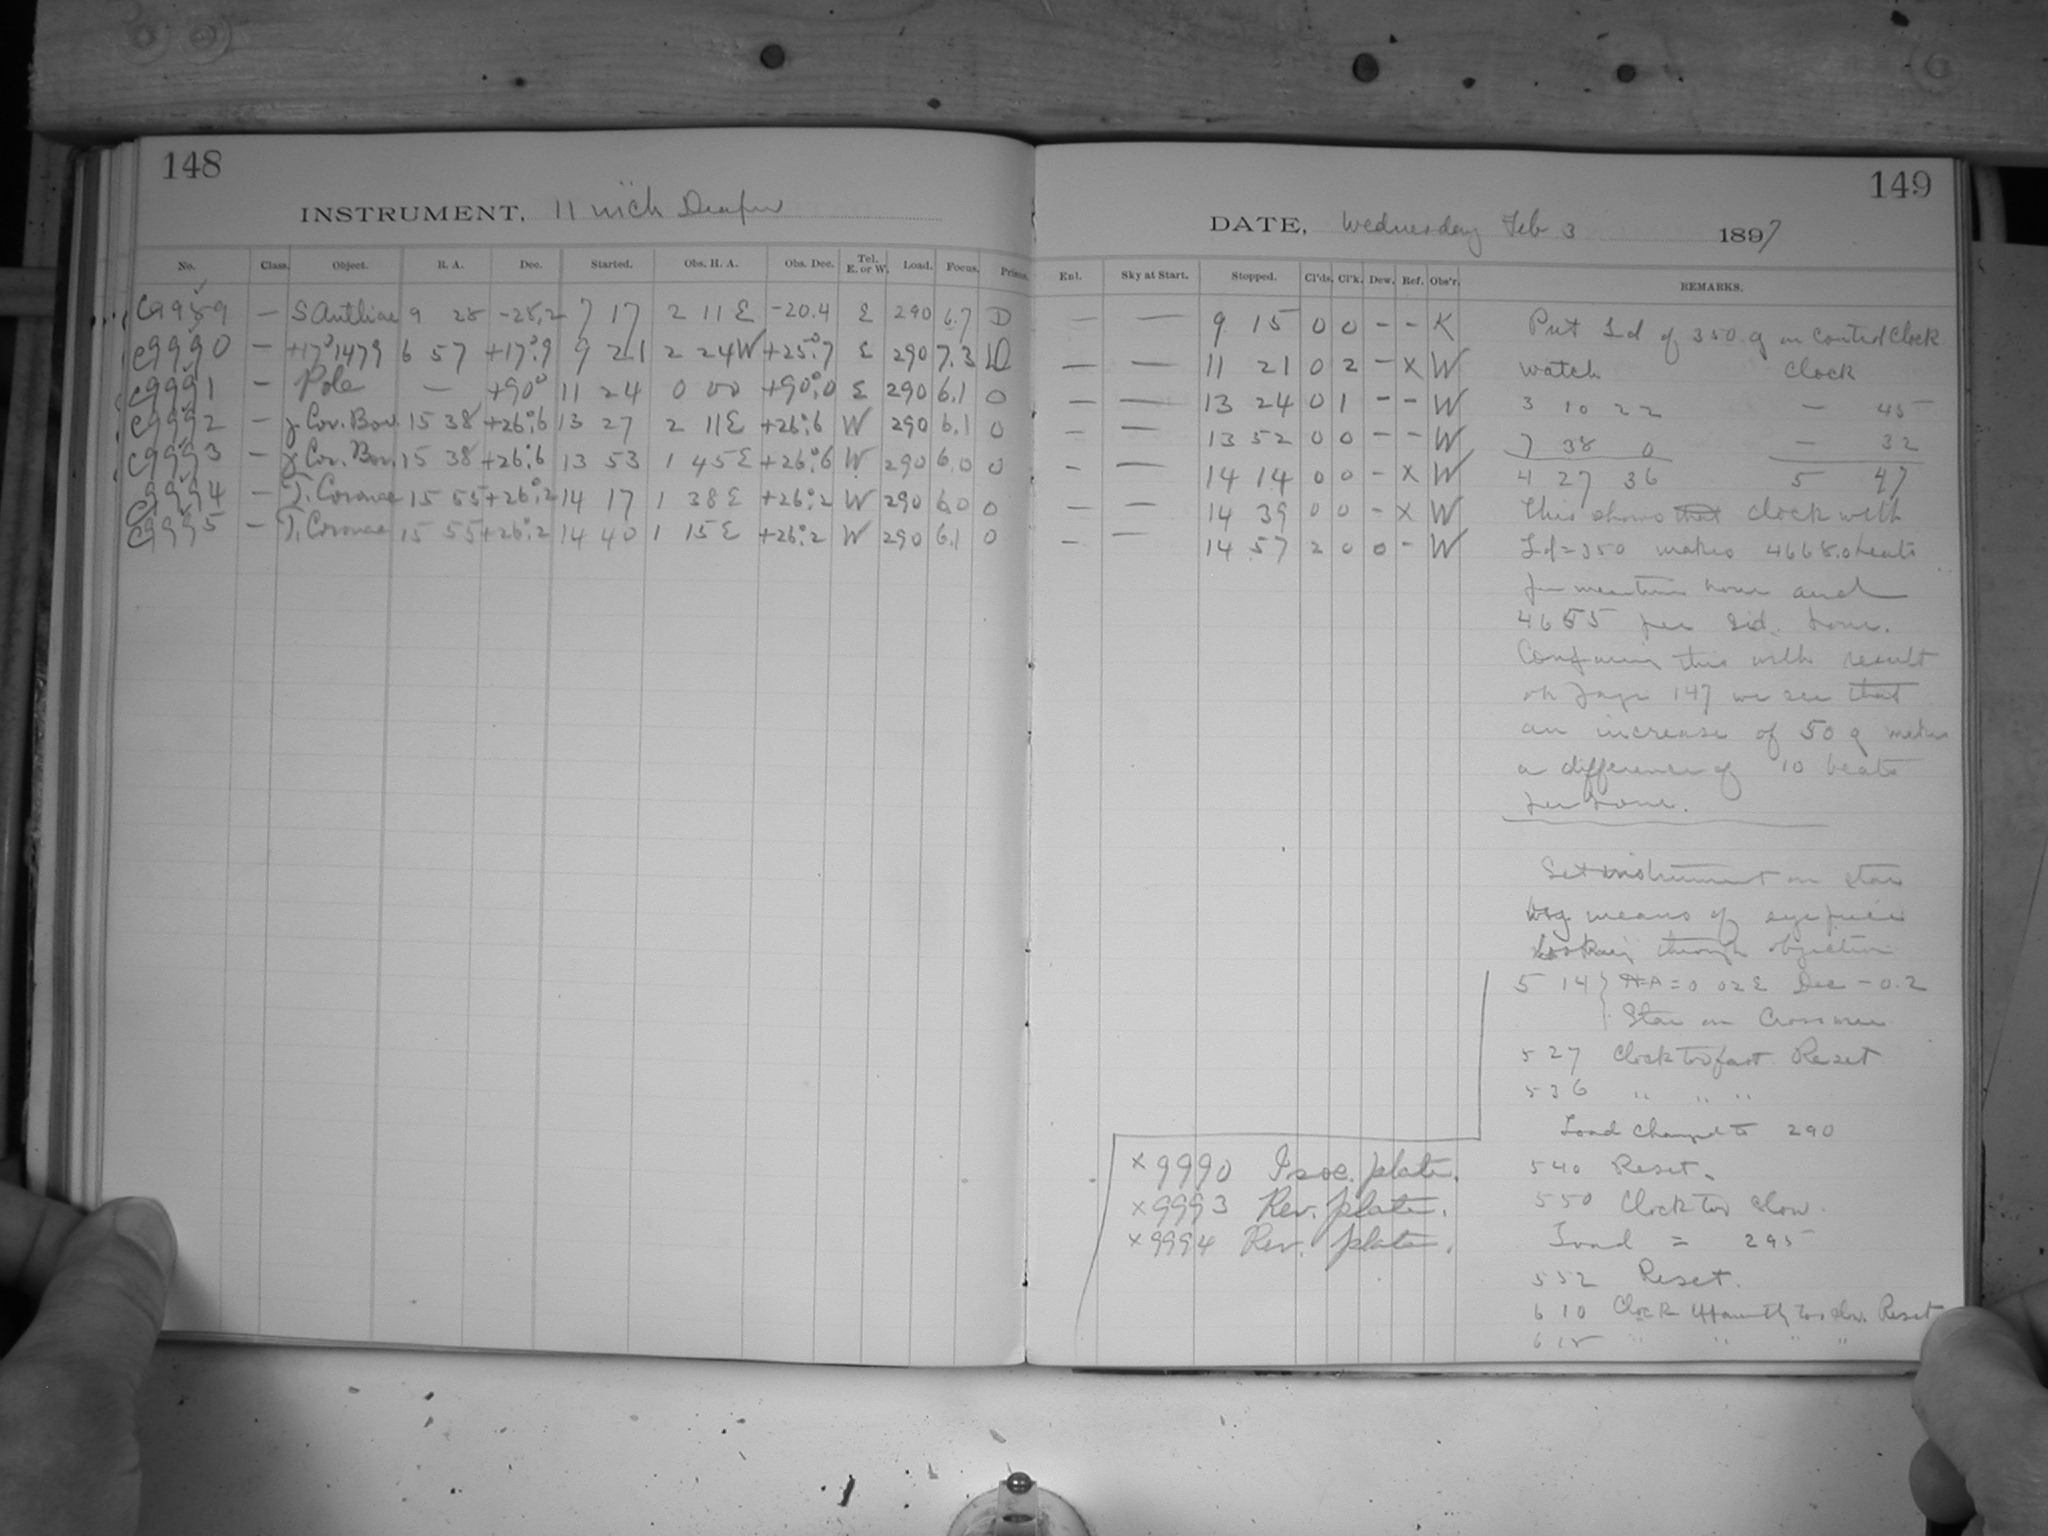 148
INSTRUMENT, 11 inch Draper
No. Class. Object. R. A. Dec. Started. Obs. H. A. Obs. Dec. Tel. E. or W. Load. Focus. Prism.
C9989 — S Antliae 9 28 -28.2 7 17 2 11 E -20.4 E 290 6.7 D
C9990 — +17°1479 6 57 +17°.9 9 21 2 24 W +25°.7 E 290 7.3 D
C9991 — Pole — +90° 11 24 0 00 +90°.0 E 290 6.1 0
C9992 — γ Cor. Bor. 15 38 +26°.6 13 27 2 11 E +26°.6 W 290 6.1 0
C9993 — γ Cor. Bor. 15 38 +26°.6 13 53 1 45 E +26°.6 W 290 6.0 0
C9994 — T. Coronae 15 55 +26°.2 14 17 1 38 E +26°.2 W 290 6.0 0
C9995 — T. Coronae 15 55 +26°.2 14 40 1 15 E +26°.2 W 290 6.1 0
149
DATE, Wednesday Feb 3 1897
Enl. Sky at Start. Stopped. Cl'ds. Cl'k. Dew. Ref. Obs'r. REMARKS.
— — 9 15 0 0 – – K
— — 11 21 0 2 – x W
— — 13 24 0 1 – – W
— — 13 52 0 0 – – W
— — 14 14 0 0 – x W
— — 14 39 0 0 – x W
— — 14 57 2 0 0 – W
Put Ld of 350 g on control clock
Watch Clock
3 10 22 — 45
7 38 0 — 32
4 27 36 5 47
This shows that clock with
Ld = 350 makes 4668.0 beats
per meantime hour and
4655 per sid. hour.
Comparing this with result
on page 147 we see that
an increase of 50 g makes
a difference of 10 beats
per hour.
Set instrument on star
by means of eye piece
looking through objective
5 14 HA = 0 02 E Dec -0.2
Star on Cross wire
5 27 Clock too fast. Reset
5 36 " " "
Load changed to 290
5 40 Reset.
5 50 Clock too slow.
Load = 295
5 52 Reset.
6 10 Clock too slow. Reset
6 15 " " " "
x 9990 Isoc. plate.
x 9993 Rev. plate.
x 9994 Rev. plate.